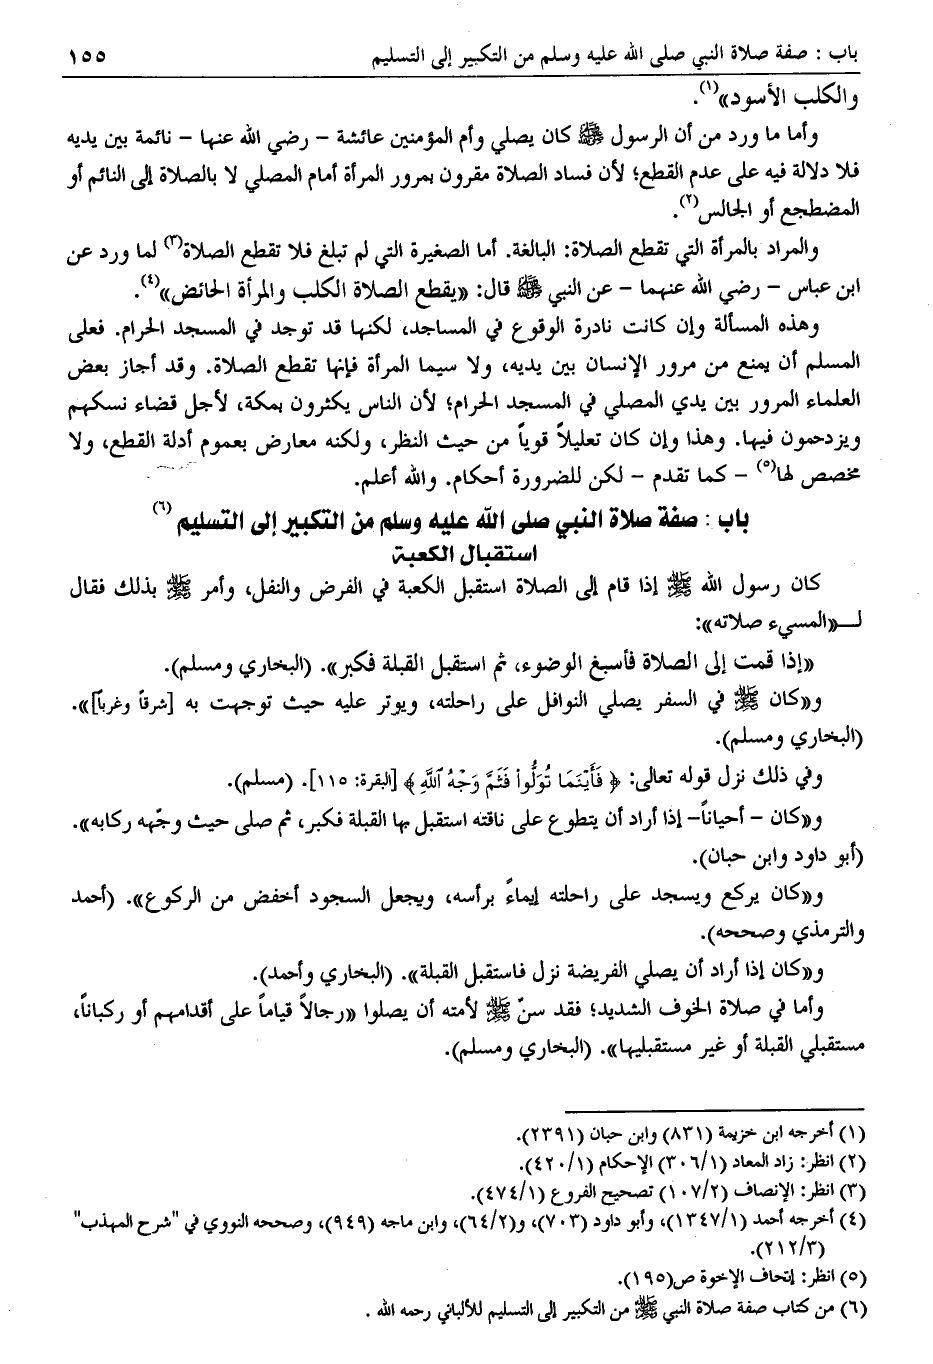 باب : صفة صلاة النبي صلى الله عليه وسلم من التكبير إلى التسليم ١٥٥
والكلب الأسود»(١).
وأما ما ورد من أن الرسول ﷺ كان يصلي وأم المؤمنين عائشة - رضي الله عنها - نائمة بين يديه
فلا دلالة فيه على عدم القطع؛ لأن فساد الصلاة مقرون بمرور المرأة أمام المصلي لا بالصلاة إلى النائم أو
المضطجع أو الجالس(٢).
والمراد بالمرأة التي تقطع الصلاة: البالغة. أما الصغيرة التي لم تبلغ فلا تقطع الصلاة(٣) لما ورد عن
ابن عباس - رضي الله عنهما - عن النبي ﷺ قال: «يقطع الصلاة الكلب والمرأة الحائض»(٤).
وهذه المسألة وإن كانت نادرة الوقوع في المساجد، لكنها قد توجد في المسجد الحرام. فعلى
المسلم أن يمنع من مرور الإنسان بين يديه، ولا سيما المرأة فإنها تقطع الصلاة. وقد أجاز بعض
العلماء المرور بين يدي المصلي في المسجد الحرام؛ لأن الناس يكثرون بمكة، لأجل قضاء نسكهم
ويزدحمون فيها. وهذا وإن كان تعليلاً قوياً من حيث النظر، ولكنه معارض بعموم أدلة القطع، ولا
مخصص لها(٥) - كما تقدم - لكن للضرورة أحكام. والله أعلم.
باب : صفة صلاة النبي صلى الله عليه وسلم من التكبير إلى التسليم (٦)
استقبال الكعبة
كان رسول الله ﷺ إذا قام إلى الصلاة استقبل الكعبة في الفرض والنفل، وأمر ﷺ بذلك فقال
لـ«المسيء صلاته»:
«إذا قمت إلى الصلاة فأسبغ الوضوء، ثم استقبل القبلة فكبر». (البخاري ومسلم).
و«كان ﷺ في السفر يصلي النوافل على راحلته، ويوتر عليه حيث توجهت به [شرقاً وغرباً]».
(البخاري ومسلم).
وفي ذلك نزل قوله تعالى: ﴿ فَأَيْنَمَا تُوَلُّوا۟ فَثَمَّ وَجْهُ ٱللَّهِ ﴾ [البقرة: ١١٥]. (مسلم).
و«كان - أحياناً- إذا أراد أن يتطوع على ناقته استقبل بها القبلة فكبر، ثم صلى حيث وجّهه ركابه».
(أبو داود وابن حبان).
و«كان يركع ويسجد على راحلته إيماءً برأسه، ويجعل السجود أخفض من الركوع». (أحمد
والترمذي وصححه).
و«كان إذا أراد أن يصلي الفريضة نزل فاستقبل القبلة». (البخاري وأحمد).
وأما في صلاة الخوف الشديد؛ فقد سنّ ﷺ لأمته أن يصلوا «رجالاً قياماً على أقدامهم أو ركباناً،
مستقبلي القبلة أو غير مستقبليها». (البخاري ومسلم).
(١) أخرجه ابن خزيمة (٨٣١) وابن حبان (٢٣٩١).
(٢) انظر: زاد المعاد (٣٠٦/١) الإحكام (٤٢٠/١).
(٣) انظر: الإنصاف (١٠٧/٢) تصحيح الفروع (٤٧٤/١).
(٤) أخرجه أحمد (١٣٤٧/١)، وأبو داود (٧٠٣)، و(٦٤/٢)، وابن ماجه (٩٤٩)، وصححه النووي في "شرح المهذب"
(٢١٢/٣).
(٥) انظر: إتحاف الإخوة ص(١٩٥).
(٦) من كتاب صفة صلاة النبي ﷺ من التكبير إلى التسليم للألباني رحمه الله .